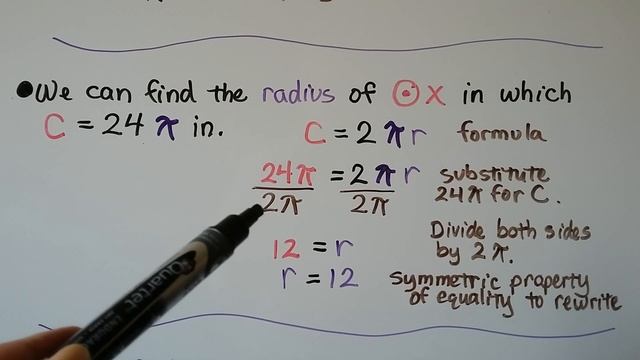 ●We can find the radius of ⊙X in which
C = 24π in.
C = 2πr formula
24π = 2πr substitute
2π 2π 24π for C.
Divide both sides
by 2π.
12 = r
r = 12 Symmetric property
of equality to rewrite
Quartet